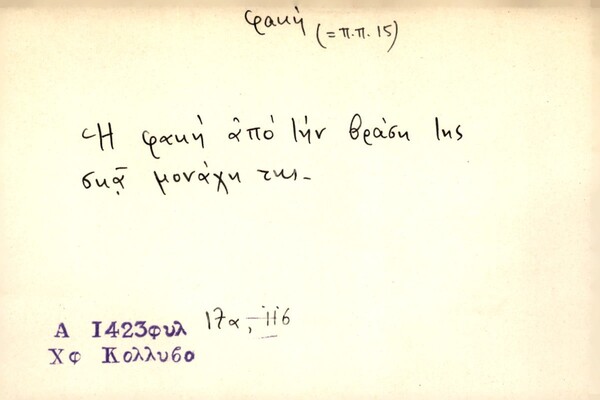 φακή (= π.π. 15)
Ἡ φακὴ ἀπὸ τὴν βράση της
σκᾷ μονάχη της.
Α 1423φυλ 17α,
Χφ Κολλυβο